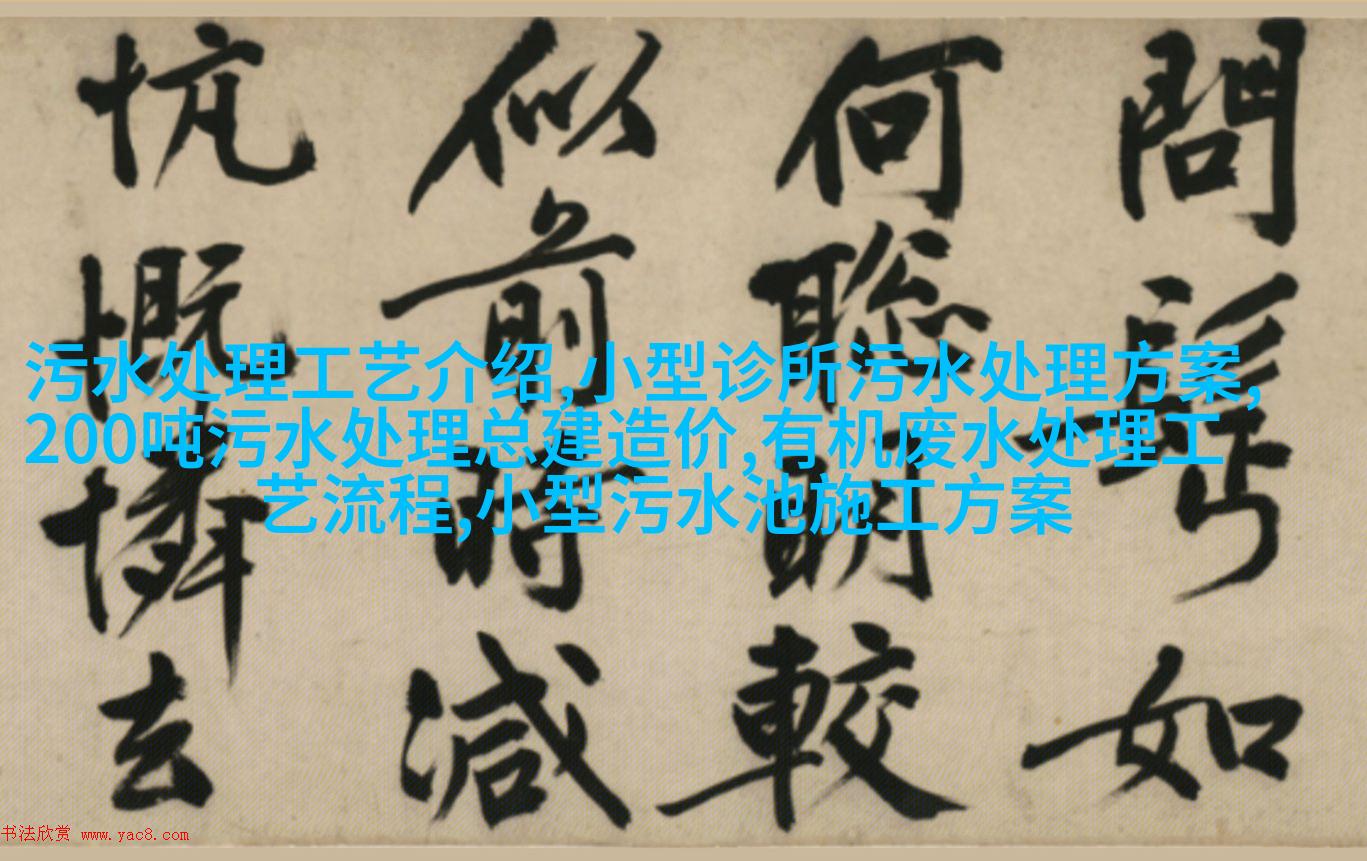 問髩如
何聡明較
似前時減
忼慨憐去
污水处理工艺介绍,小型诊所污水处理方案,
200吨污水处理总建造价,有机废水处理工
艺流程,小型污水池施工方案
书法欣赏 www.yac8.com